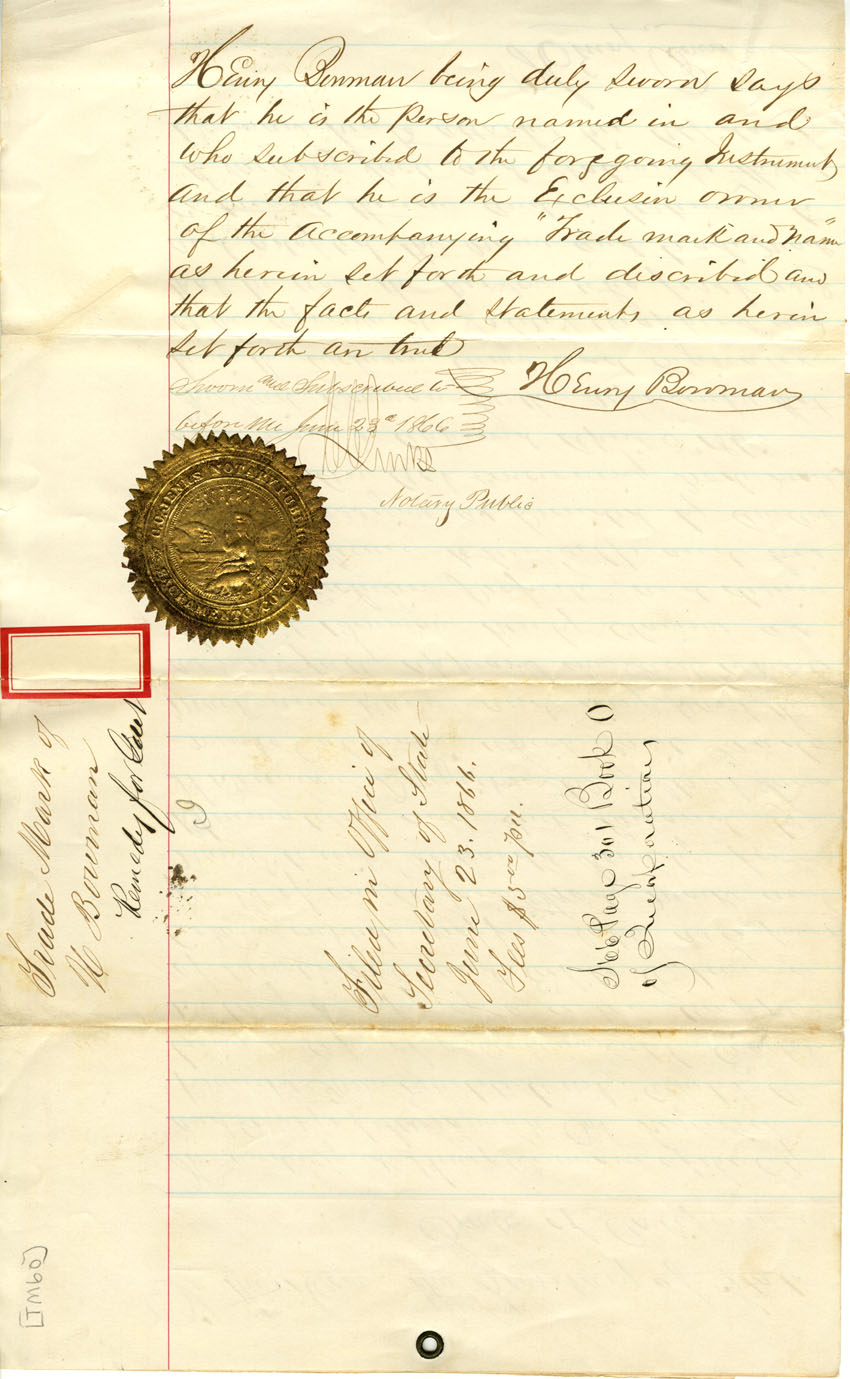 Henry Bowman being duly sworn says
that he is the person named in and
who subscribed to the foregoing Instrument
and that he is the Exclusiv owner
of the Accompanying "Trade mark and Name"
as herein set forth and discribed and
that the facts and statements as herein
set forth are true
Sworn and Subscribed to
before me June 23d 1866
Henry Bowman
Notary Public
NOTARY PUBLIC
SACRAMENTO CO. CAL
Trade Mark of
H Bowman
Remedy for Gout
Filed in Office of
Secretary of State
June 23. 1866.
Fees $5
See Page 301 Book O
of Incorporations
[TM60]